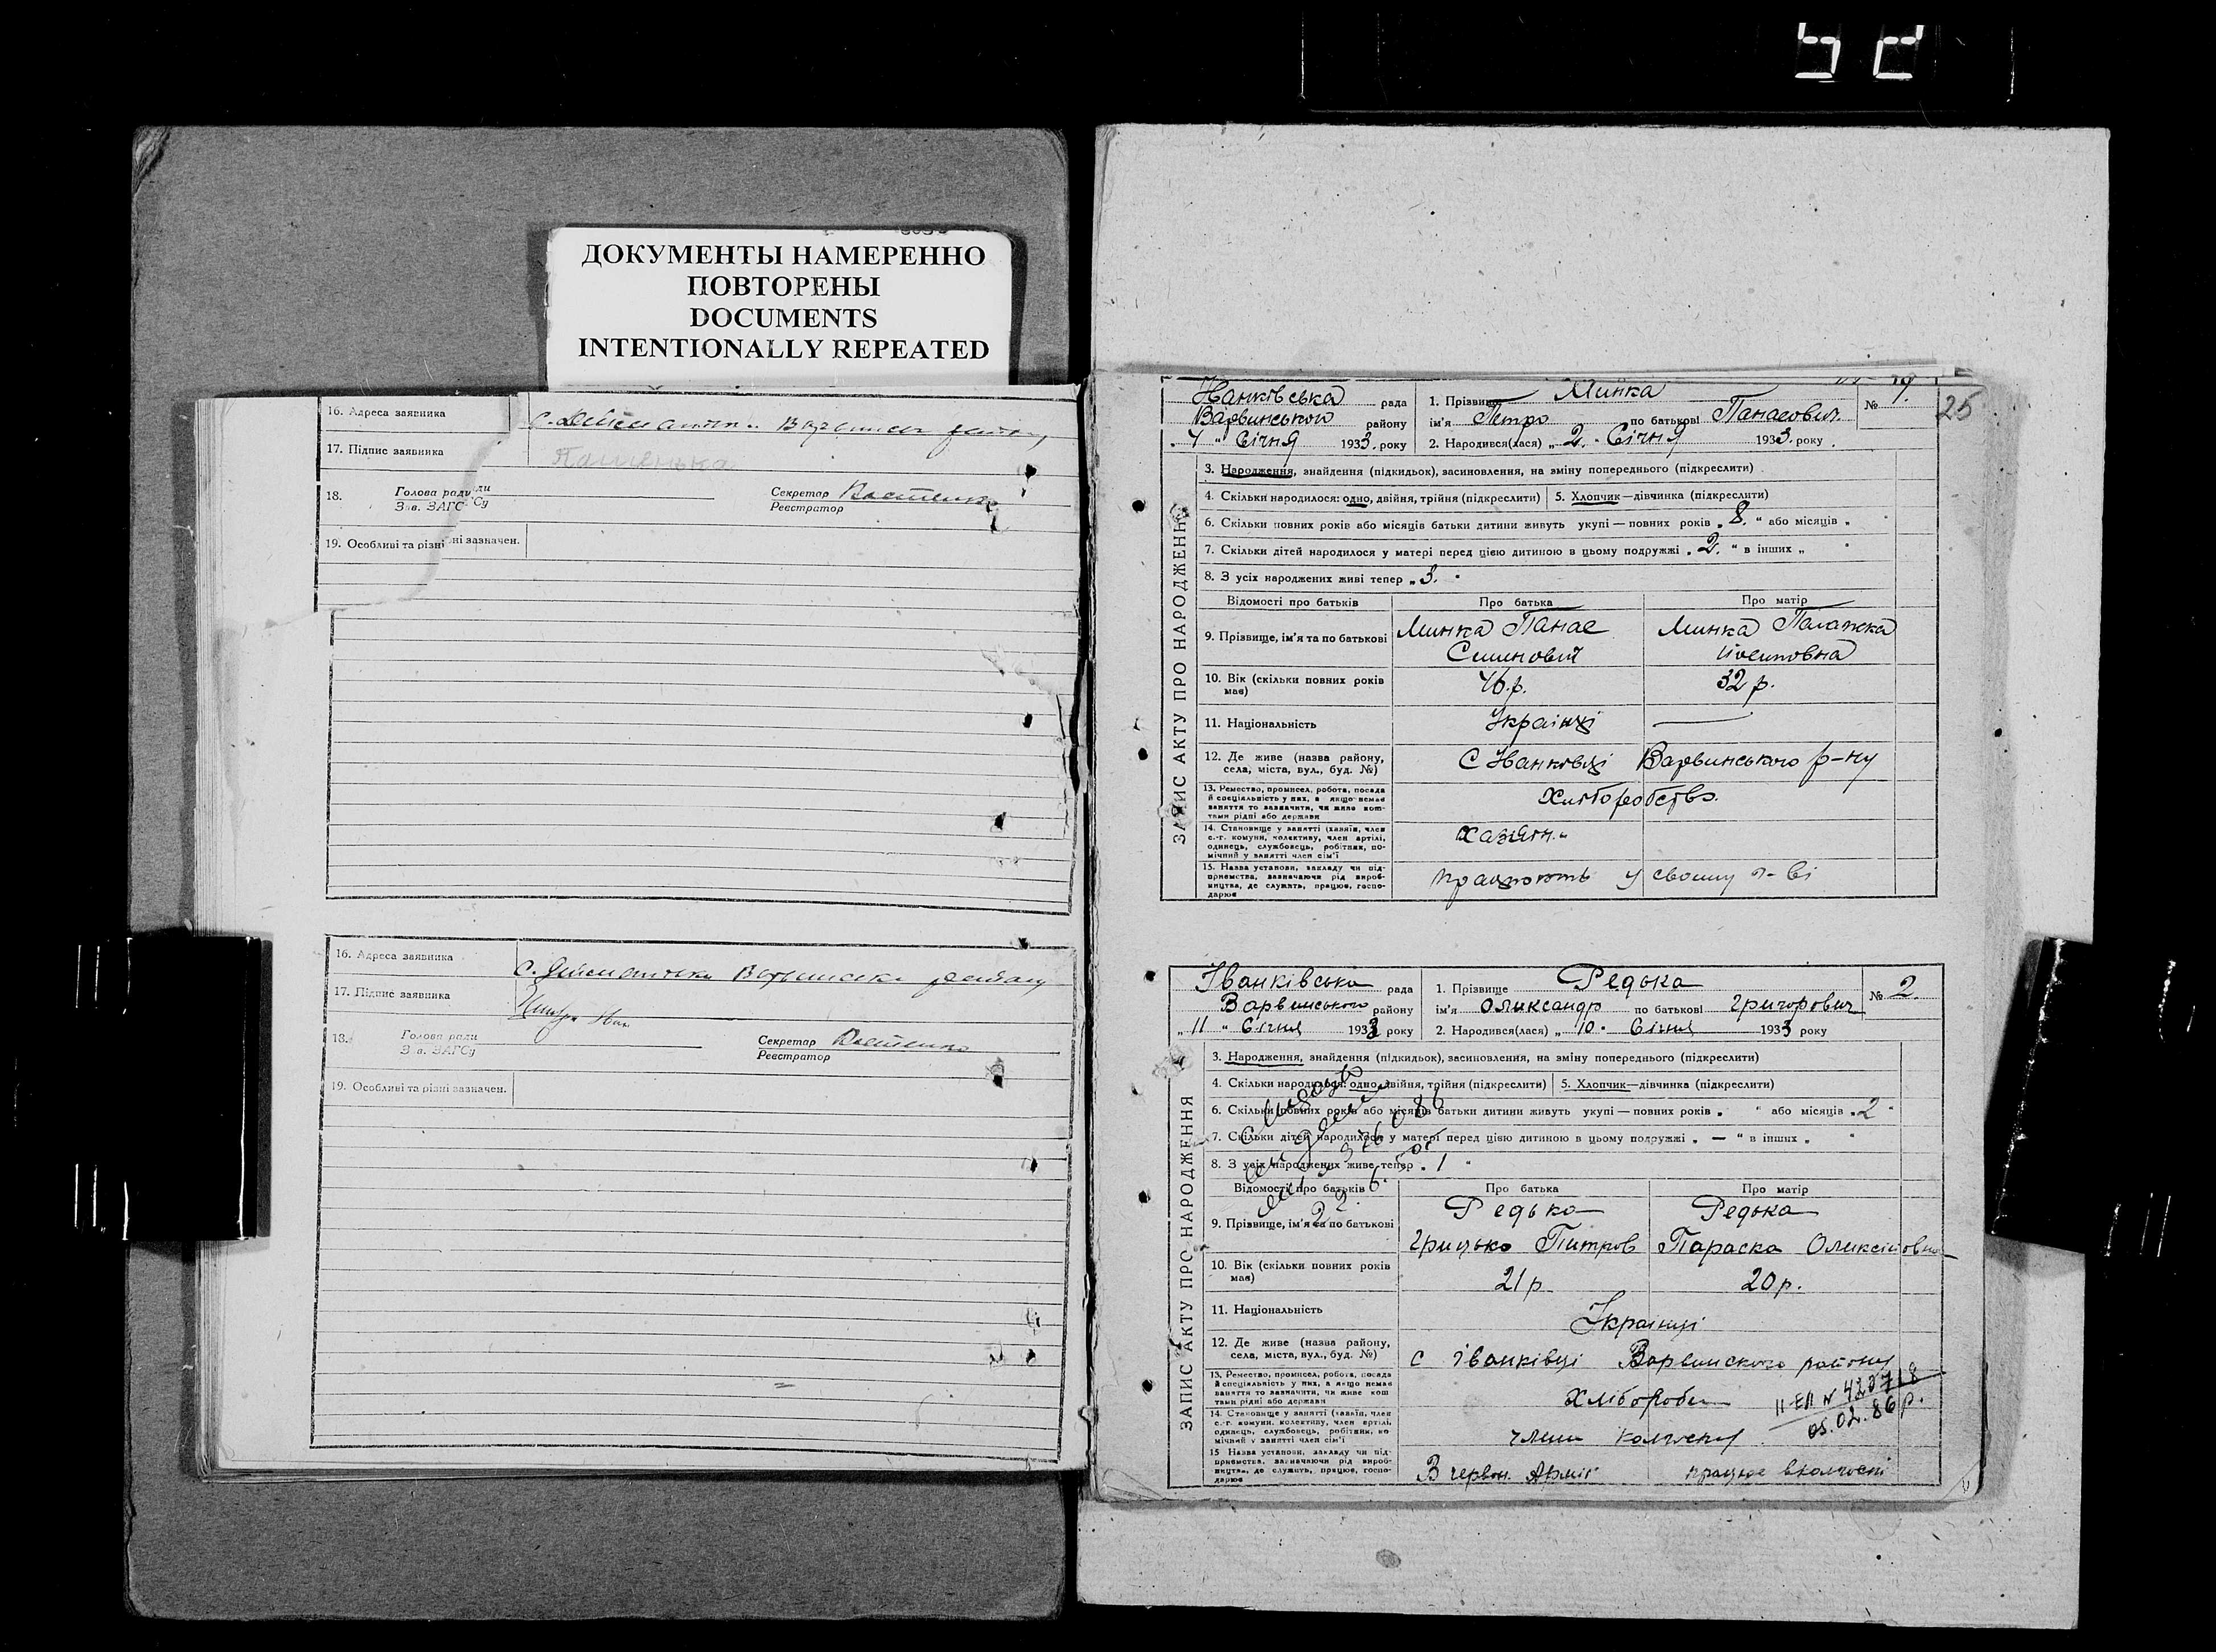 ДОКУМЕНТЫ НАМЕРЕННО
ПОВТОРЕНЫ
DOCUMENTS
INTENTIONALLY REPEATED
16. Адреса заявника
17. Підпис заявника
18. Голова ради Секретар
Зав. ЗАГСу Реєстратор
19. Особливі та різні зазначен.
16. Адреса заявника
17. Підпис заявника
18. Голова ради Секретар
Зав. ЗАГСу Реєстратор
19. Особливі та різні зазначен.
25
ЗАПИС АКТУ ПРО НАРОДЖЕННЯ
Іванківська рада 1. Прізвище Минка № 1.
Варвинського району ім'я Петро по батькові Панасович
Січня 1933 року 2. Народився(лася) „ 2 " Січня 1933 року
3. Народження, знайдення (підкидьок), засиновлення, на зміну попереднього (підкреслити)
4. Скільки народилося: одно, двійня, трійня (підкреслити) 5. Хлопчик—дівчинка (підкреслити)
6. Скільки повних років або місяців батьки дитини живуть укупі — повних років „ 8. " або місяців „
7. Скільки дітей народилося у матері перед цією дитиною в цьому подружжі „ 2. " в інших „ "
8. З усіх народжених живі тепер „ 3. "
Відомості про батьків Про батька Про матір
9. Прізвище, ім'я та по батькові Минка Панас Минка Палажка
10. Вік (скільки повних років має) 32 р.
11. Національність Українці
12. Де живе (назва району, С Іванківці Варвинського р-ну
села, міста, вул., буд. №)
13. Ремество, промисел, робота, посада Хліборобство
й спеціяльність у них, а якщо немає
заняття то зазначити, чи живе кош-
тами рідні або держави
14. Становище у занятті (хазяїн, член хазяїн
с.-г. комуни, колективу, член артілі,
одинець, службовець, робітник, по-
мічний у занятті член сім'ї
15. Назва установи, закладу чи під- працюють у своему г-ві
приємства, зазначаючи рід вироб-
ництва, де служить, працює, госпо-
дарює
ЗАПИС АКТУ ПРО НАРОДЖЕННЯ
Іванківська рада 1. Прізвище Редька № 2.
Варвинського району ім'я Олександр по батькові Григорович
„ 11 " Січня 1933 року 2. Народився(лася) „ 10 " Січня 1933 року
3. Народження, знайдення (підкидьок), засиновлення, на зміну попереднього (підкреслити)
4. Скільки народилося: одно, двійня, трійня (підкреслити) 5. Хлопчик—дівчинка (підкреслити)
6. Скільки повних років або місяців батьки дитини живуть укупі — повних років „ " або місяців „ 2 "
7. Скільки дітей народилося у матері перед цією дитиною в цьому подружжі „ — " в інших „ "
8. З усіх народжених живе тепер „ 1 "
Відомості про батьків Про батька Про матір
Редька Редька
9. Прізвище, ім'я та по батькові Грицько Питров Параска Олексіівна
10. Вік (скільки повних років має) 21 р 20 р.
11. Національність Українці
12. Де живе (назва району, с іванківці Варвинского району
села, міста, вул., буд. №)
13. Ремество, промисел, робота, посада Хлібороби
й спеціяльність у них, а якщо немає
заняття то зазначити, чи живе кош
тами рідні або держави
II-ЕЛ № 423718
05.02.86 р.
14. Становище у занятті (хазяїн, член члени колгоспу
с.-г. комуни, колективу, член артілі,
одинець, службовець, робітник, по
мічний у занятті член сім'ї
15 Назва установи, закладу чи під- В червон. Арміі працює в колгоспі
приємства, зазначаючи рід вироб-
ництва, де служить, працює, госпо-
дарює